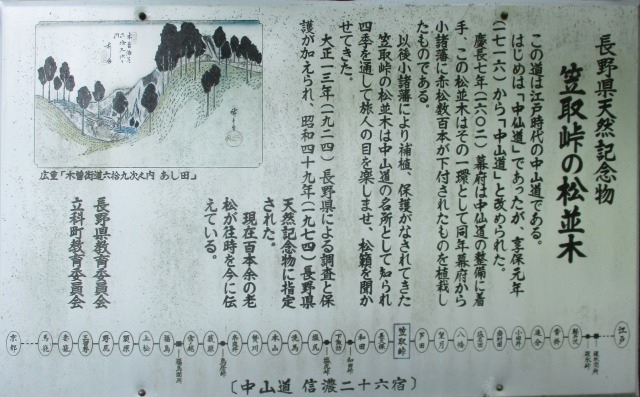 長野県天然記念物
笠取峠の松並木
この道は江戸時代の中山道である。
はじめは「中仙道」であったが、享保元年
(一七一六)から「中山道」と改められた。
慶長七年(一六〇二)幕府は中仙道の整備に着
手、この松並木はその一環として同年幕府から
小諸藩に赤松数百本が下付されたものを植栽し
たものである。
以後小諸藩により補植、保護がなされてきた
笠取峠の松並木は中山道の名所として知られ
四季を通して旅人の目を楽しませ、松籟を聞か
せてきた。
大正一三年(一九二四)長野県による調査と保
護が加えられ、昭和四十九年(一九七四)長野県
天然記念物に指定
された。
現在百本余の老
松が往時を今に伝
えている。
長野県教育委員会
立科町教育委員会
広重「木曽街道六拾九次之内 あし田」
江戸
軽井沢
沓掛
追分
小田井
岩村田
塩名田
八幡
望月
芦田
笠取峠
長久保
和田
和田峠
下諏訪
塩尻峠
塩尻
洗馬
本山
贄川
奈良井
鳥居峠
薮原
宮越
福島関所
福島
上松
須原
野尻
三留野
妻籠
馬籠
京都
〔中山道 信濃二十六宿〕